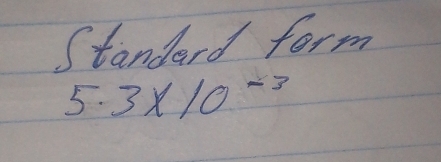 Standard form
5.3 x 10⁻³